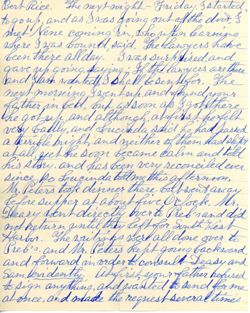 Best Rice. The next night - Friday, I started
to go up, and as I was going out of the door I
met Vene coming in who upon learning
where I was bound, said. The lawyers have
been there all day. I was surprised and
gave up going, saying, If the lawyers are there
and Just wanted I shall be sent for. The
next morning I went up and found your
father in bed, but as soon as I got there
he got up, and although, at first, he felt
very badly, and Lucinda said he had passed
a terrible night, and neither of them had slept
at all, yet he soon became calm and told
his story and has been very reconciled ever
since, so Lucinda told me this afternoon.
Mr. Peters took dinner there, but went away
before supper at about five O'clock. Mr.
Deasy went directly over to Preb's and did
not return until they left for South West
Harbor. The writings were all done over to
Preb's, and Mr. Peters kept going backward
and forward in order to consult Deasy and
Sam, evidently. At first your father refused
to sign anything, and wanted to send for me
at once, and made the request several times